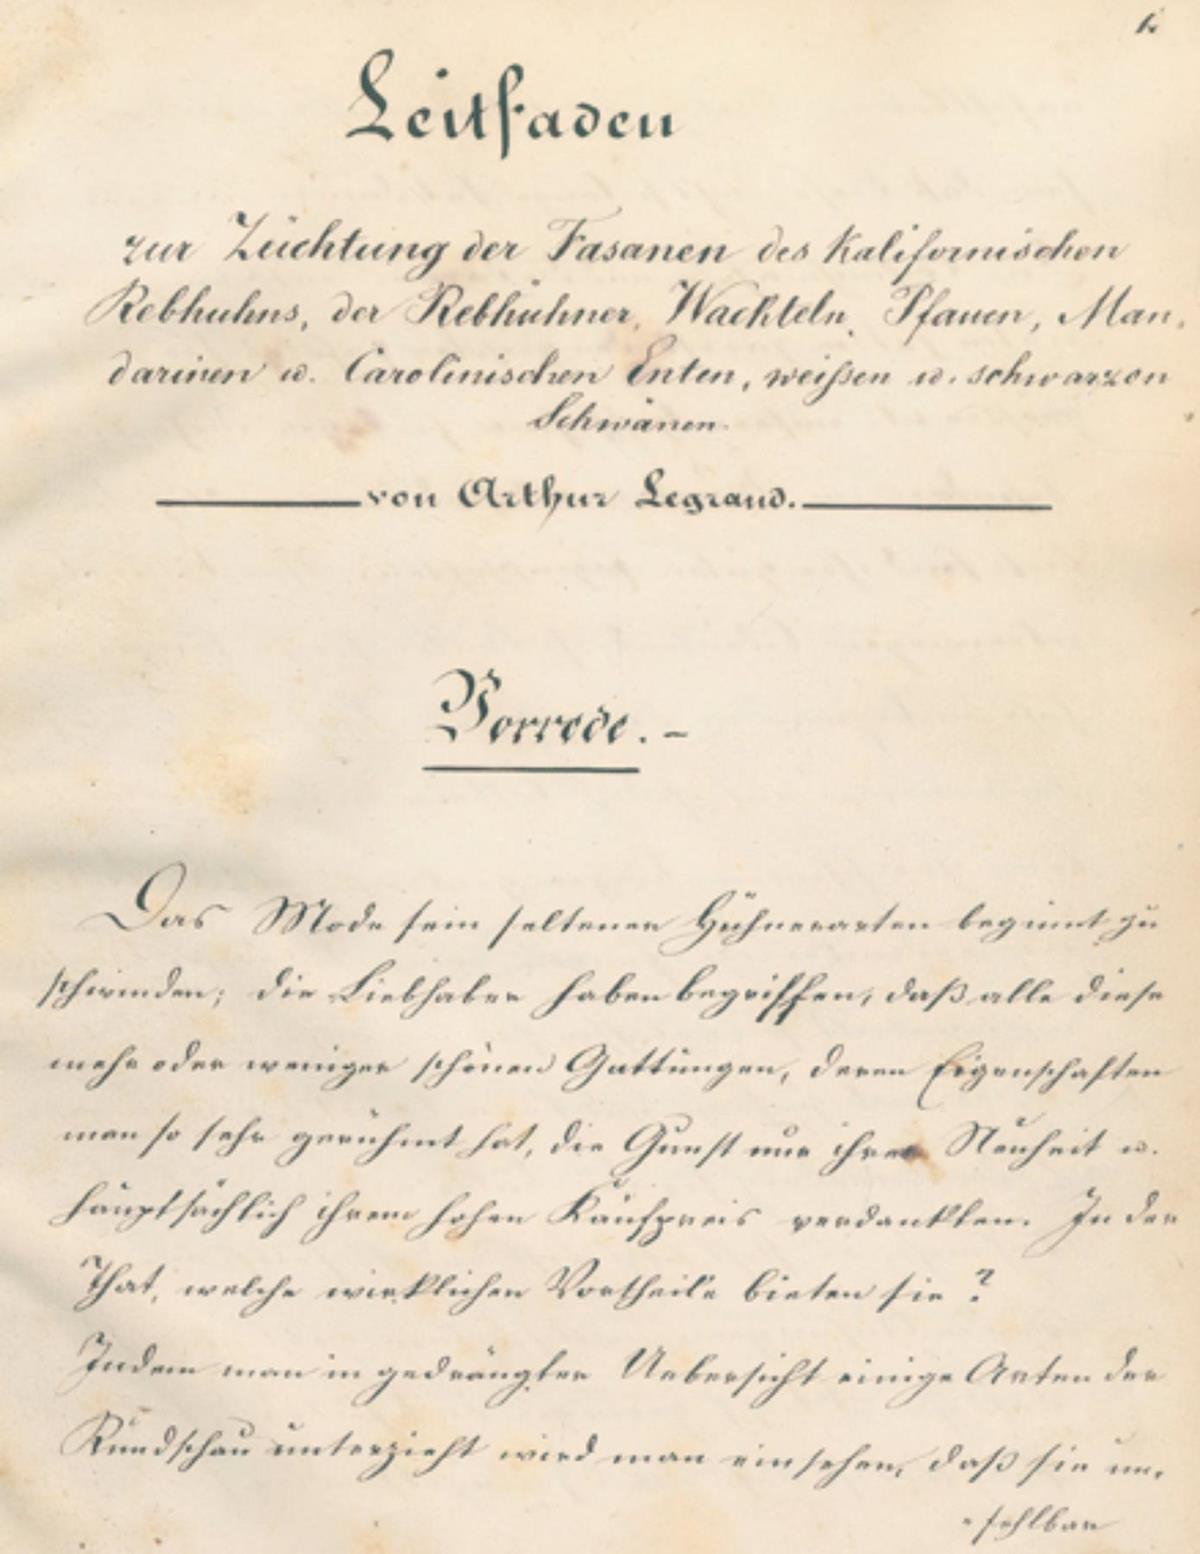 1.
Leitfaden
zur Züchtung der Fasanen des Kalifornischen
Rebhuhns, der Rebhühner, Wachteln, Pfauen, Man,
darinen u. Carolinischen Enten, weißen u. schwarzen
Schwänen.
von Arthur Legrand.
Vorrede. –
Das Mode sein seltener Hühnerarten beginnt zu
schwinden; die Liebhaber haben begriffen, daß alle diese
mehr oder weniger schönen Gattungen, deren Eigenschaften
man so sehr gerühmt hat, die Gunst nur ihrer Neuheit u.
hauptsächlich ihrem hohen Kaufpreis verdankten. In der
That, welche wirklichen Vortheile bieten sie?
Indem man in gedrängter Uebersicht einige Arten der
Rundschau unterzieht wird man einsehen, daß sie un,
fehlbar